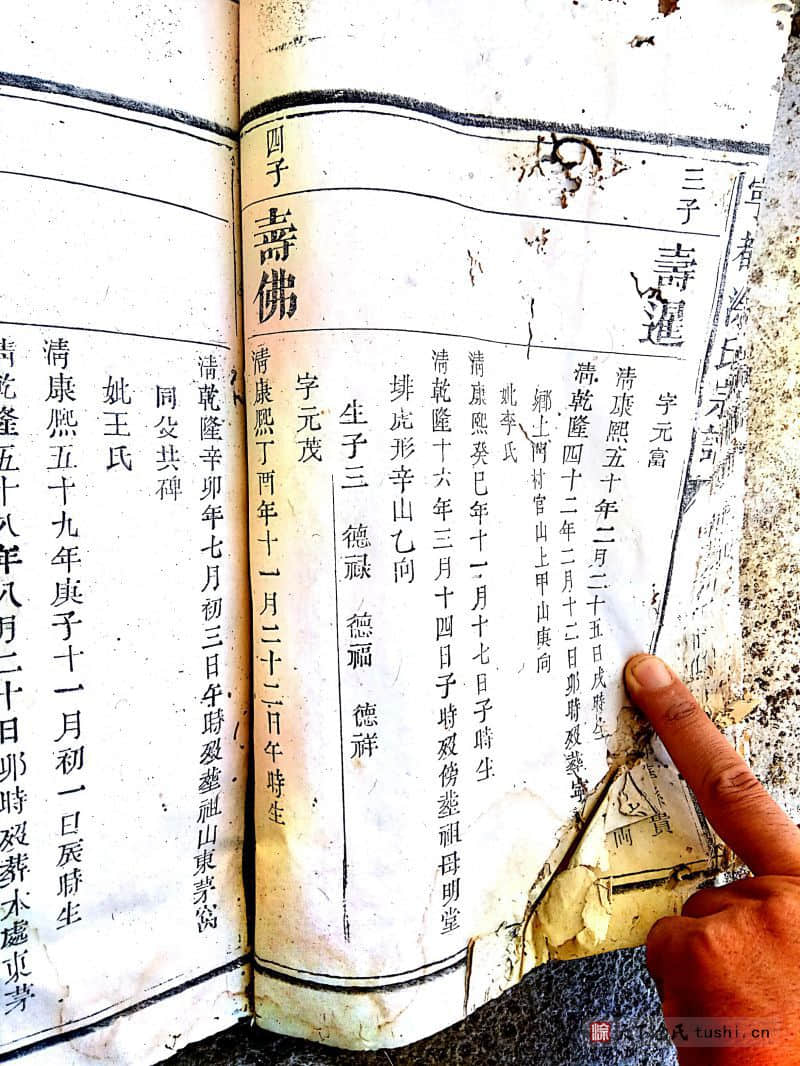 三子
壽暹
字元富
清康熙五十年二月二十五日戌時生
清乾隆四十二年二月十二日卯時歿葬寧
鄉上門村官山上甲山庚向
妣李氏
清康熙癸巳年十一月十七日子時生
清乾隆十六年三月十四日子時歿傍塟祖母明堂
排虎形辛山乙向
生子三 德祿 德福 德祥
四子
壽佛
字元茂
清康熙丁酉年十一月二十二日午時生
清乾隆辛卯年七月初三日午時歿塟祖山東茅窩
同父共碑
妣王氏
清康熙五十九年庚子十一月初一日辰時生
清乾隆五十八年八月二十日卯時歿葬本處東茅
貴
向
tushi.cn